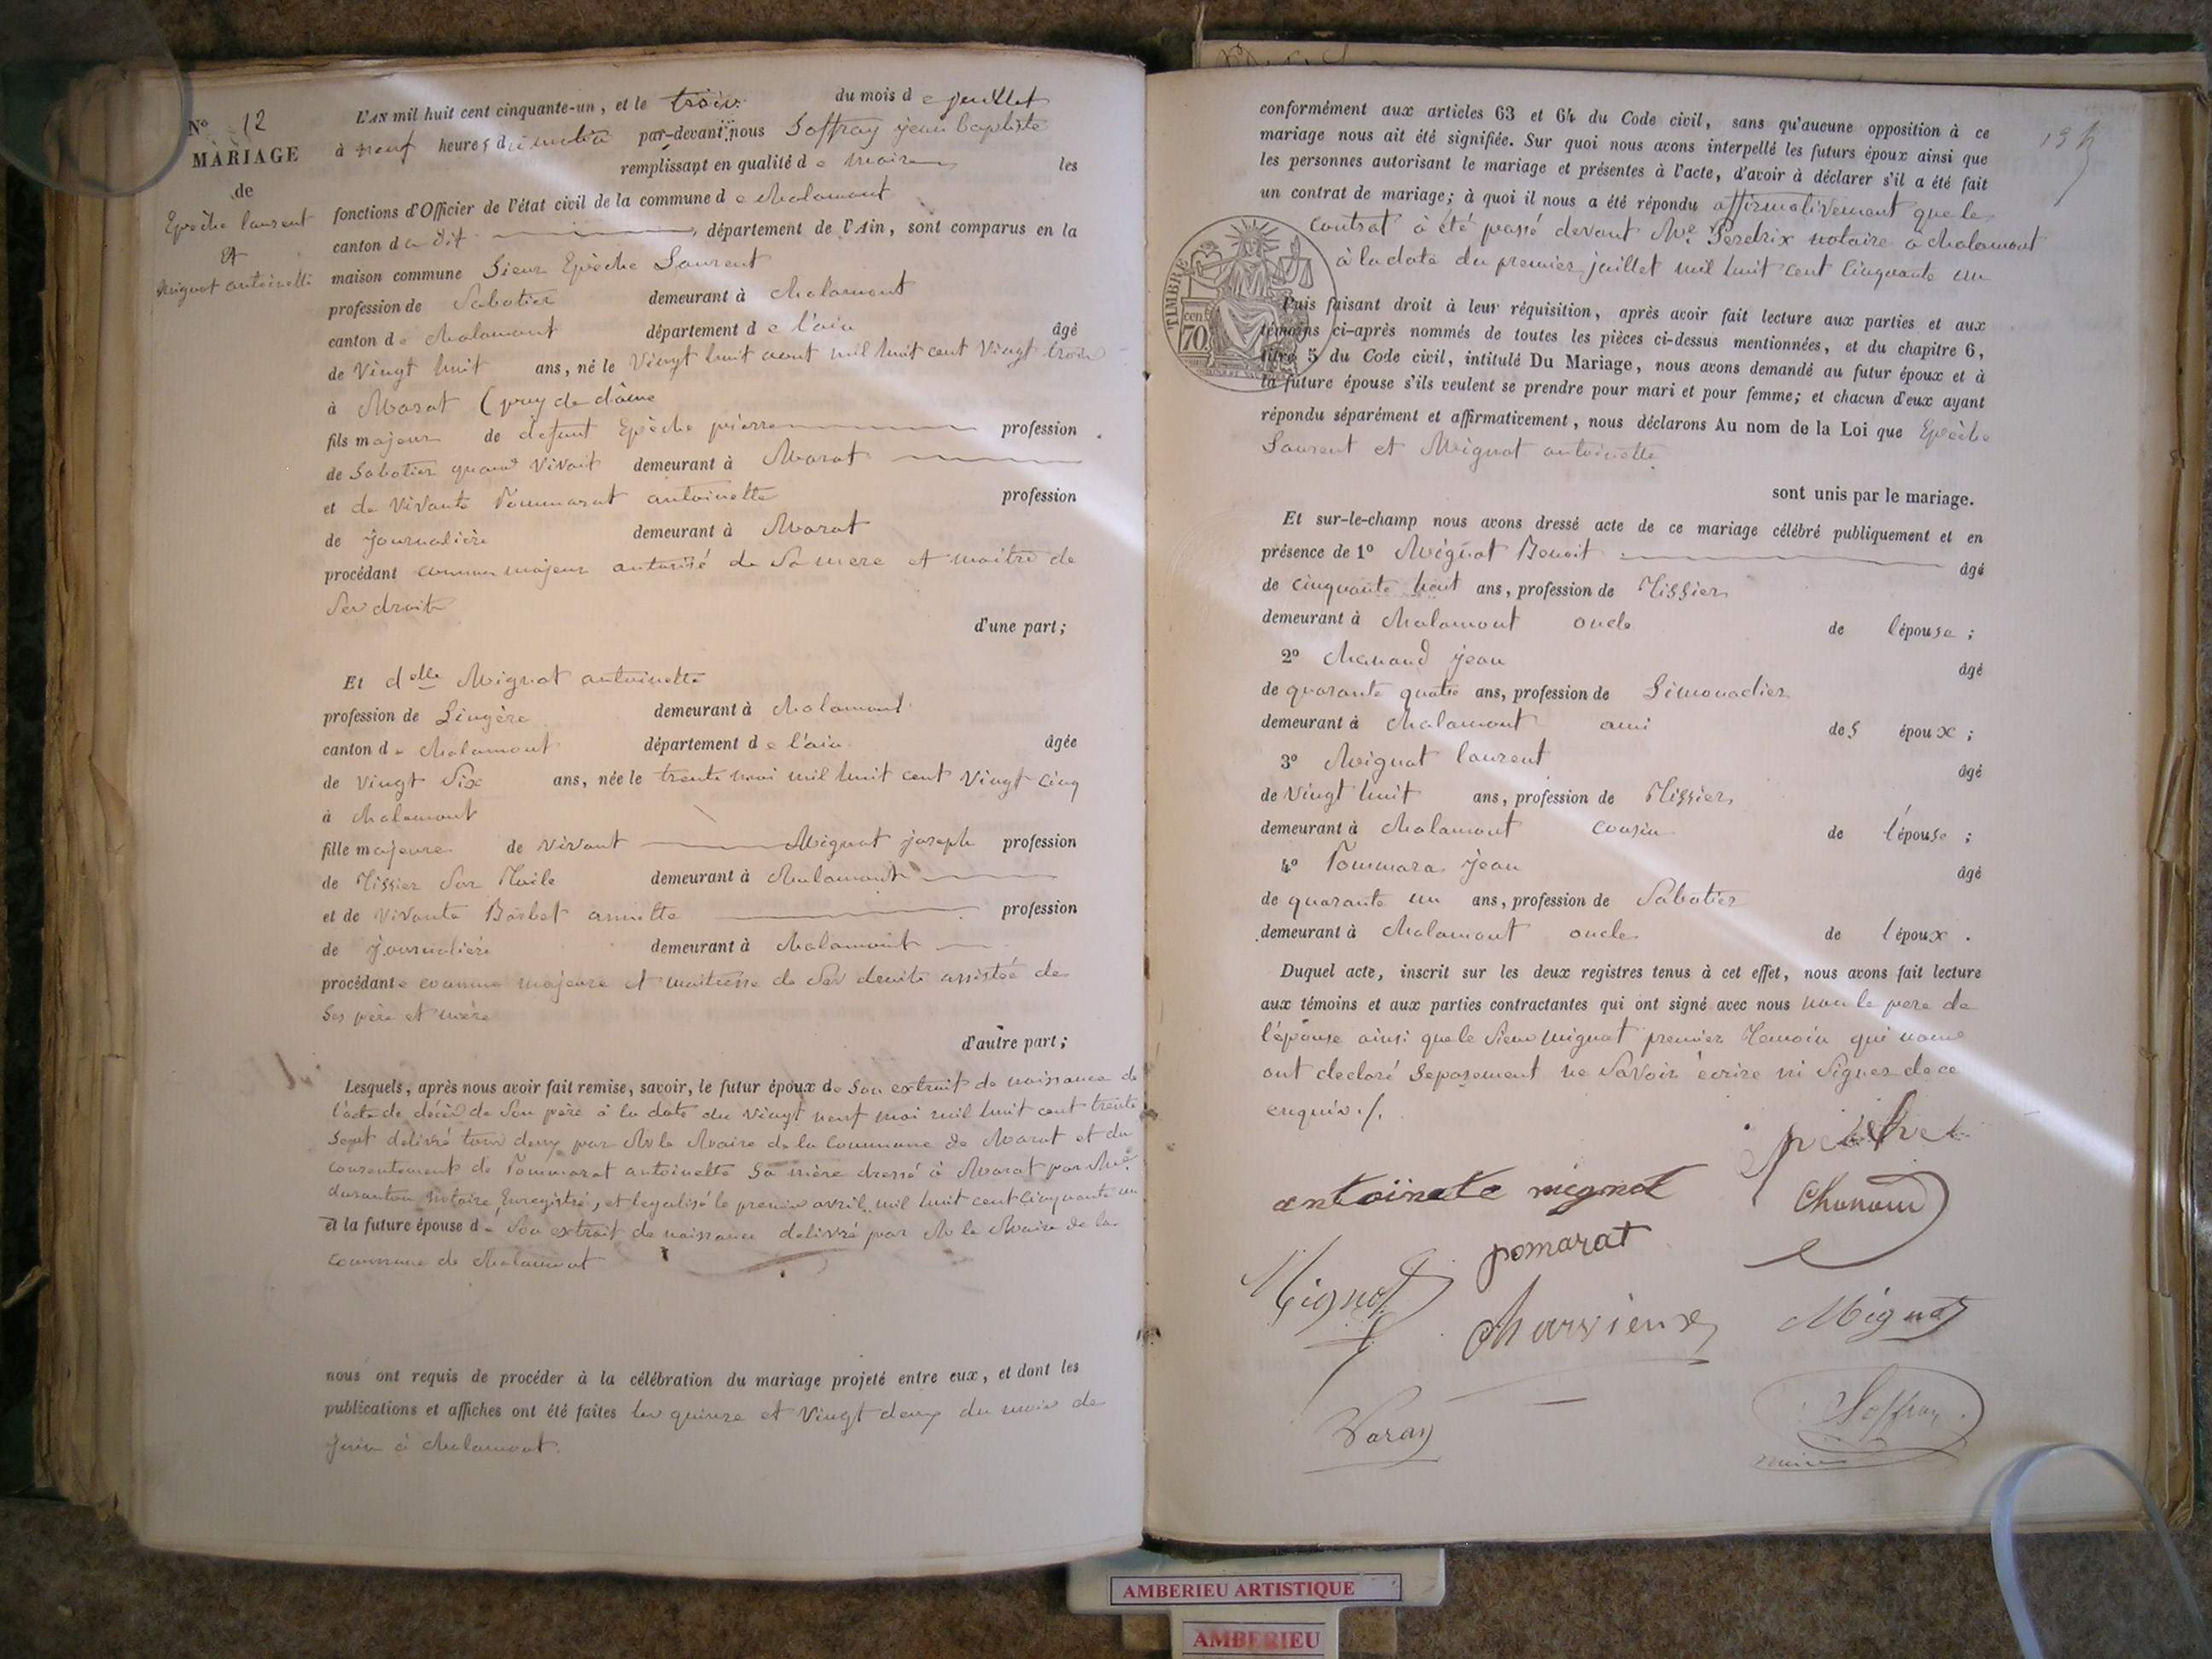 N° 12
MARIAGE
de
Epèche laurent
et
mignot antoinette
L'AN mil huit cent cinquante-un, et le trois du mois de juillet
à neuf heures du matin par-devant nous Soffray jean baptiste
remplissant en qualité de maire les
fonctions d'Officier de l'état civil de la commune de chalamont
canton du dit département de l'Ain, sont comparus en la
maison commune Sieur Epèche Laurent
profession de Sabotier demeurant à chalamont
canton de chalamont département de l'ain âgé
de vingt huit ans, né le vingt huit aout mil huit cent vingt trois
à Marat (puy de dôme
fils majeur de défunt Epèche pierre profession
de Sabotier quand vivait demeurant à Marat
et de vivante Pommarat antoinette profession
de journalière demeurant à Marat
procédant comme majeur autorisé de Sa mere et maitre de
Ses droits
d'une part;
Et delle Mignot antoinette
profession de Lingère demeurant à chalamont
canton de chalamont département de l'ain âgée
de vingt Six ans, née le trente mai mil huit cent vingt cinq
à chalamont
fille majeure de vivant Mignot joseph profession
de Tissier Sur Toile demeurant à chalamont
et de vivante Barbet annette profession
de journalière demeurant à chalamont
procédante comme majeure et maitresse de Ses droits assistée de
Ses père et mère
d'autre part;
Lesquels, après nous avoir fait remise, savoir, le futur époux de Son extrait de naissance de
l'acte de décès de Son père à la date du vingt neuf mai mil huit cent trente
Sept délivré tous deux par Mr le Maire de la Commune de Marat et du
consentement de Pommarat antoinette Sa mère dressé à Marat par Me
duranton notaire, Enregistré, et legalisé le premier avril mil huit cent cinquante un
et la future épouse de Son extrait de naissance delivré par Mr le Maire de la
commune de chalamont
nous ont requis de procéder à la célébration du mariage projeté entre eux, et dont les
publications et affiches ont été faites les quinze et vingt deux du mois de
juin à chalamont.
conformément aux articles 63 et 64 du Code civil, sans qu'aucune opposition à ce
mariage nous ait été signifiée. Sur quoi nous avons interpellé les futurs époux ainsi que
les personnes autorisant le mariage et présentes à l'acte, d'avoir à déclarer s'il a été fait
un contrat de mariage; à quoi il nous a été répondu affirmativement que le
contrat à été passé devant Me Perdrix notaire à chalamont
à la date du premier juillet mil huit cent cinquante un
TIMBRE
70 cent
Puis faisant droit à leur réquisition, après avoir fait lecture aux parties et aux
témoins ci-après nommés de toutes les pièces ci-dessus mentionnées, et du chapitre 6,
titre 5 du Code civil, intitulé Du Mariage, nous avons demandé au futur époux et à
la future épouse s'ils veulent se prendre pour mari et pour femme; et chacun d'eux ayant
répondu séparément et affirmativement, nous déclarons Au nom de la Loi que Epèche
Laurent et Mignot antoinette
sont unis par le mariage.
Et sur-le-champ nous avons dressé acte de ce mariage célébré publiquement et en
présence de 1° Mignot Benoit âgé
de cinquante huit ans, profession de Tissier
demeurant à chalamont oncle de l'épouse;
2° Chanaud jean âgé
de quarante quatre ans, profession de Limonadier
demeurant à chalamont ami des époux;
3° Mignot laurent âgé
de vingt huit ans, profession de Tissier
demeurant à chalamont cousin de l'épouse;
4° Pommara jean âgé
de quarante un ans, profession de Sabotier
demeurant à chalamont oncle de l'époux.
Duquel acte, inscrit sur les deux registres tenus à cet effet, nous avons fait lecture
aux témoins et aux parties contractantes qui ont signé avec nous non le pere de
l'épouse ainsi que le Sieur mignot premier Temoin qui nous
ont declaré Séparement ne Savoir écrire ni Signer de ce
enquis
antoinete mignot
Chanaud
pomarat
Mignot
charvieux
Mignot
Soffray
maire
AMBERIEU ARTISTIQUE
AMBERIEU